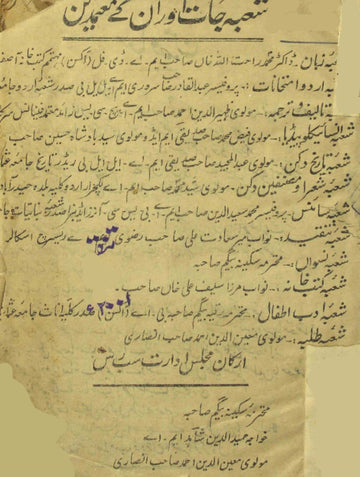 شعبہ جات اور ان کے معتمدین
شعبہ زبان :۔ ڈاکٹر محمد راحت اللہ خاں صاحب ایم۔ اے۔ ڈی۔ فل (آکسن) مہتمم کتب خانہ آصفیہ
شعبہ اردو امتحانات :۔ پروفیسر عبدالقادر صاحب سروری ایم اے ایل ایل بی صدر شعبہ اردو
شعبہ تالیف و ترجمہ :۔ مولوی ظہیر الدین احمد صاحب ایم۔ اے۔ ایچ سی۔ ایس زائد معتمد فینانس
شعبہ انسائیکلوپیڈیا :۔ مولوی فیض محمد صاحب صدیقی ایم ایڈ و مولوی سید بادشاہ حسین صاحب
شعبہ تاریخ دکن :۔ مولوی عبدالمجید صاحب صدیقی ایم۔ اے۔ ایل ایل بی ریڈر تاریخ جامعہ
شعبہ شعرا و مصنفین دکن :۔ مولوی سید محمد صاحب ایم۔ اے لکچرار اردو کلیہ بلدہ حیدرآباد
شعبہ سائنس :۔ پروفیسر محمد سعید الدین صاحب ایم۔ اے۔ بی۔ ایس سی۔ آنرز صدر شعبہ نباتیات
شعبہ تنقید :۔ نواب میر سعادت علی صاحب رضوی اے ریسرچ اسکالر
شعبہ نسواں :۔ محترمہ سکینہ بیگم صاحبہ
شعبہ کتب خانہ :۔ نواب مرزا سیف علی خاں صاحب۔
شعبہ ادب اطفال :۔ محترمہ بیگم صاحبہ بی۔ اے (آکسن) صدر کلیہ اناث
شعبہ طلبہ :۔ مولوی معین الدین احمد صاحب انصاری
ارکان مجلس ادارت سب رس
محترمہ سکینہ بیگم صاحبہ
خواجہ حمید الدین شاہد ایم۔ اے
مولوی معین الدین احمد صاحب انصاری